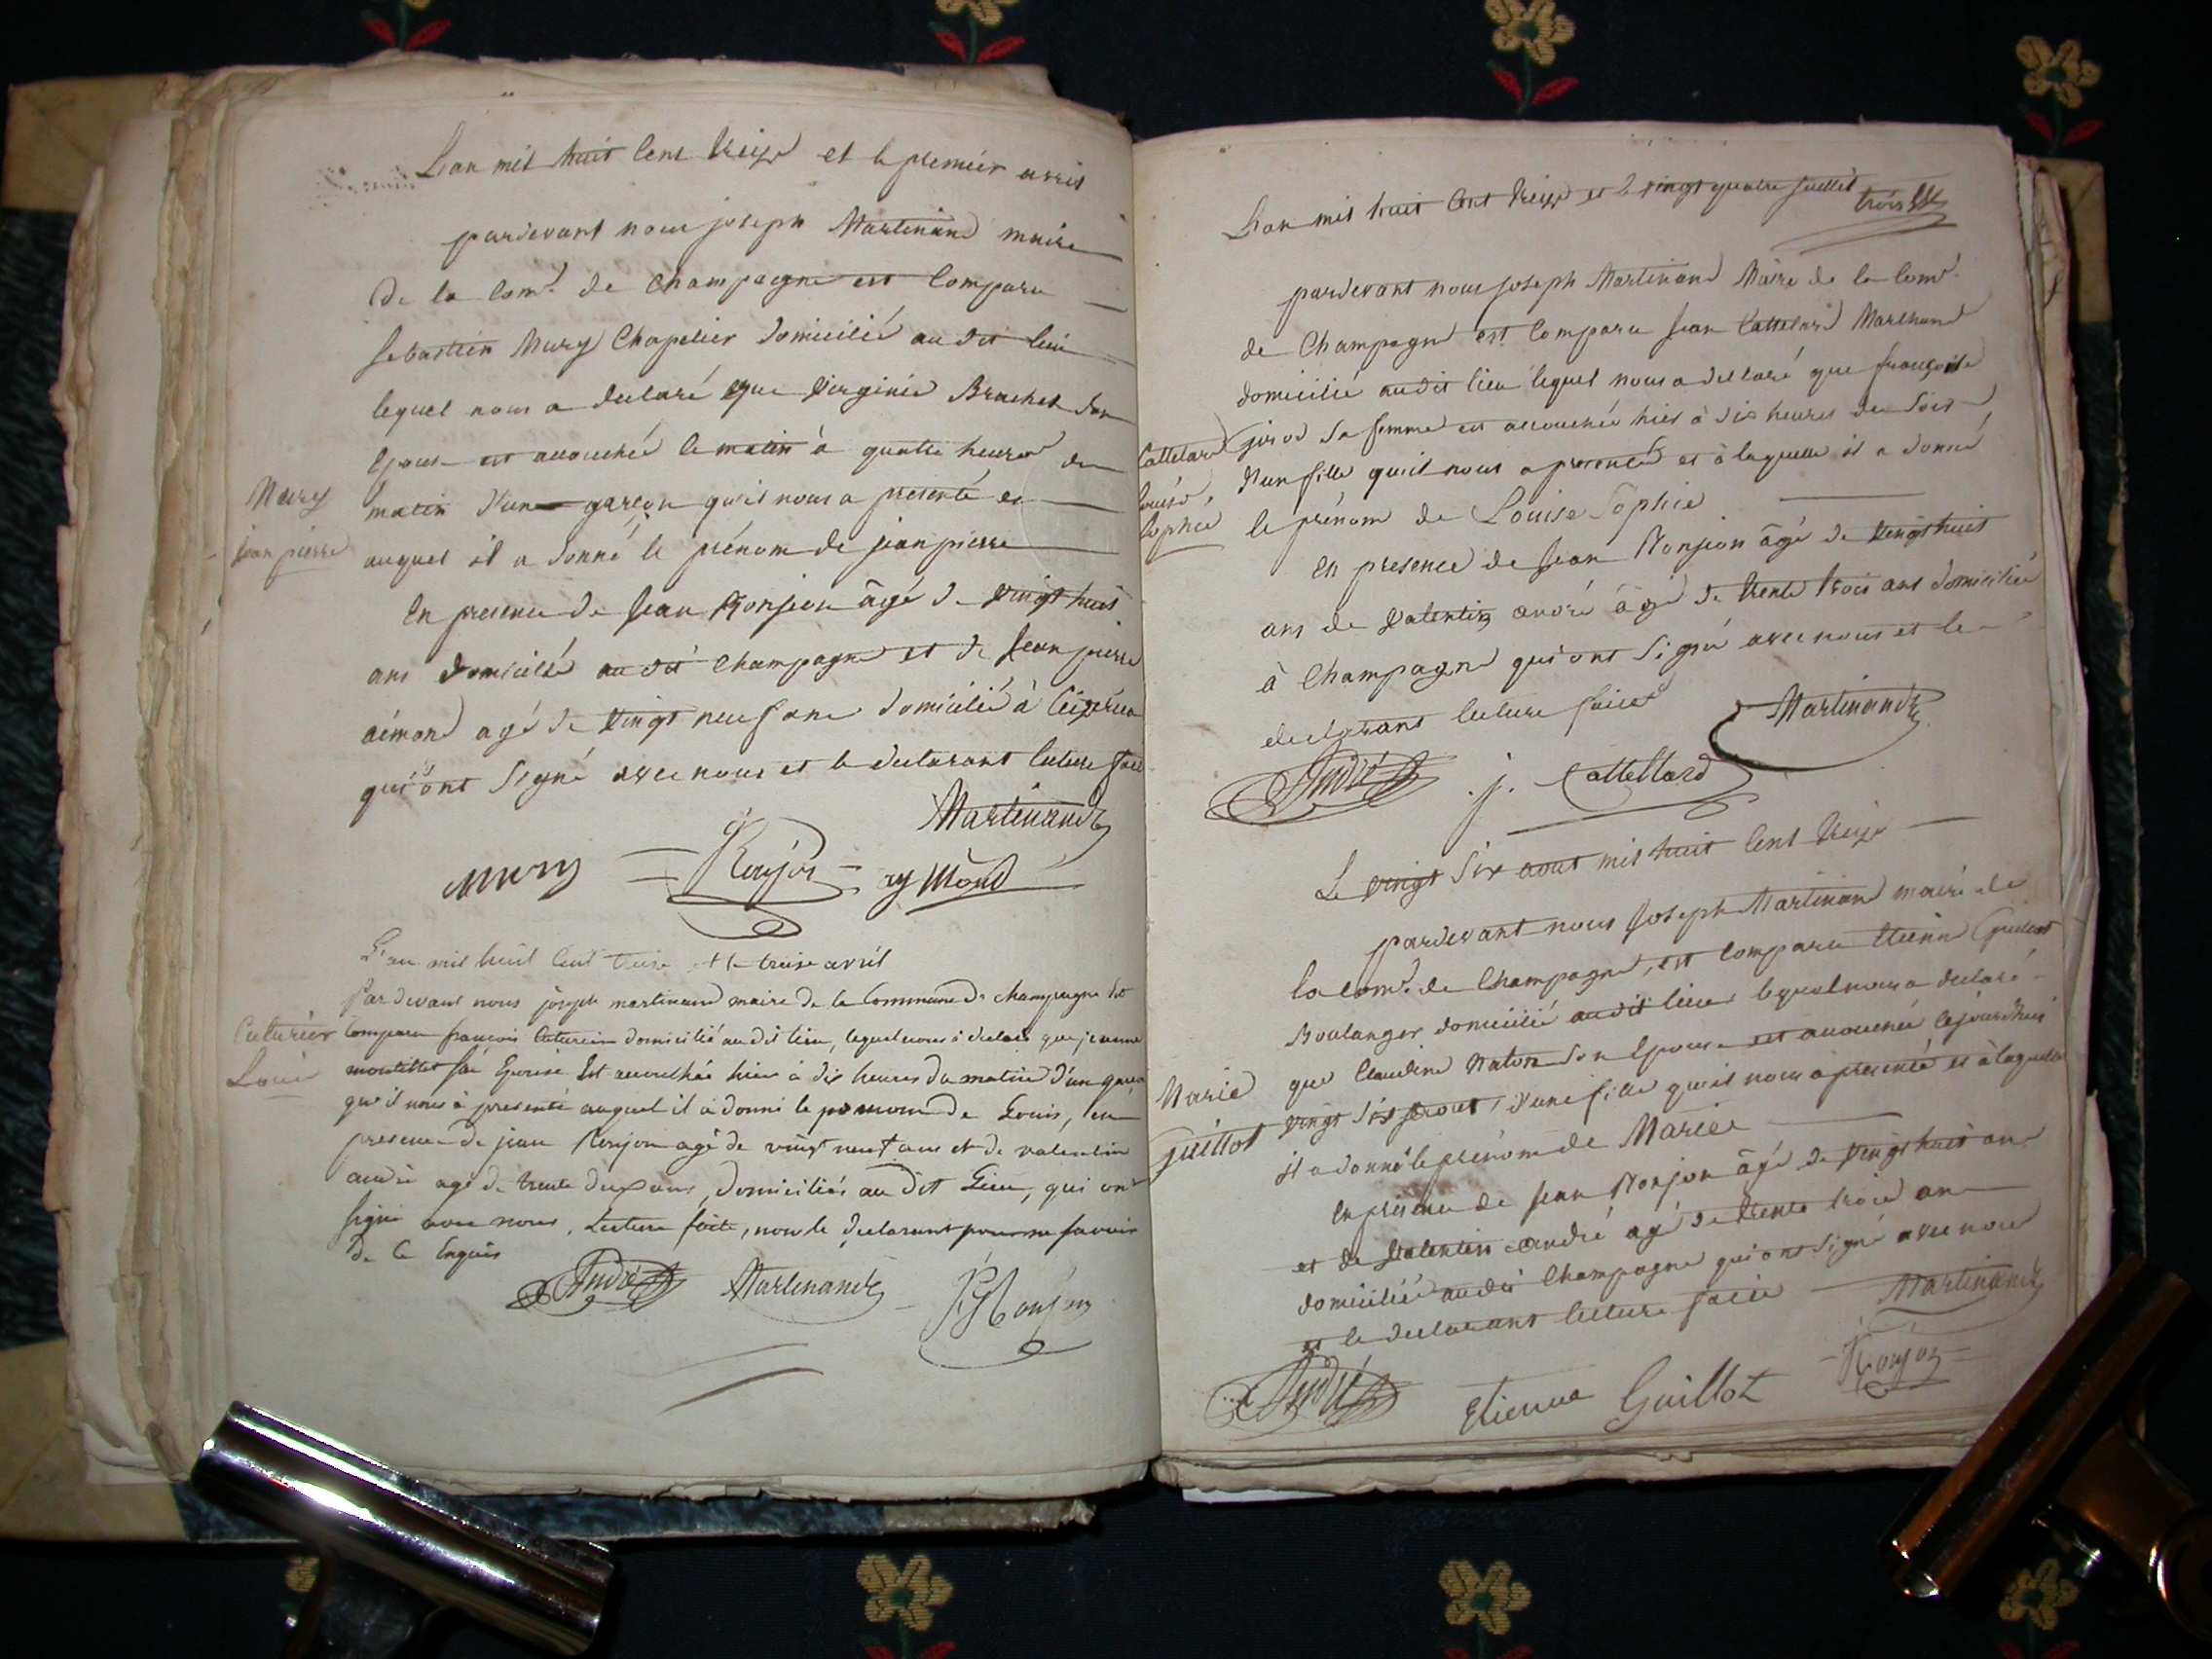 L'an mil huit Cent treize et le premier avril
pardevant nous joseph Martinand maire
de la Com.e de Champagne est Comparu
sebastien Mury Chapelier domicilié au dit lieu
lequel nous a declaré que Virginie Brachet son
Epouse est accouchée le matin à quatre heures du
matin d'un garçon qu'il nous a presenté et
auquel il a donné le prénom de jean pierre
En presence de Jean Ronjon âgé de vingt huit
ans domicilié au dit Champagne et de Jean pierre
aimond agé de vingt neuf ans domicilié à
qui ont signé avec nous et le declarant lecture faite
Mury
jean pierre
Martinand
Mury Ronjon aymond
L'an mil huit Cent treise et le treise avril
Pardevant nous joseph martinand maire de la Commune de champagne est
Comparu francois Cuturier domicilié au dit lieu, lequel nous à declaré que jeanne
moutillet sa Epouse Est accouchée hier à dix heures du matin d'un garçon
qu'il nous à presenté auquel il à donné le prenom de Louis, en
presence de jean Ronjon agé de vingt neuf ans et de valentin
andré agé de trente deux ans, domiciliés au dit Lieu, qui ont
signé avec nous, Lecture faite, non le declarant pour ne savoir
de ce Enquis
Cuturier
Loui
André Martinand J Ronjon
L'an mil huit Cent treize et le vingt quatre juillet
pardevant nous joseph Martinand Maire de la Com.e
de Champagne est Comparu Jean Cattelard Marchand
domicilié audit lieu lequel nous a declaré que françoise
jirod sa femme est accouchée hier à dix heures du soir
d'un fille qu'il nous a presenté et à laquelle il a donné
le prénom de Louise Sophie
En presence de Jean Ronjon âgé de vingt huit
ans de Valentin andré âgé de trente trois ans domicilié
à Champagne qui ont signé avec nous et le
declarant lecture faite
Cattelard
Louise
Sophie
Martinand
André j. Cattellard
Le vingt six aout mil huit Cent treize
pardevant nous Joseph Martinand maire de
la Com.e de Champagne, est Comparu Etienne Guillot
Boulanger domicilié audit lieu lequel nous a declaré
que Claudine Naton son Epouse est accouchée cejourdhui
vingt six aout, d'une fille qu'il nous a presenté et à laquelle
il a donné le prénom de Marie
En présence de Jean Ronjon âgé de vingt huit ans
et de Valentin andré agé de trente trois ans
domicilié audit Champagne qui ont signé avec nous
et le declarant lecture faite
Marie
Guillot
Martinand
André Etienne Guillot Ronjon